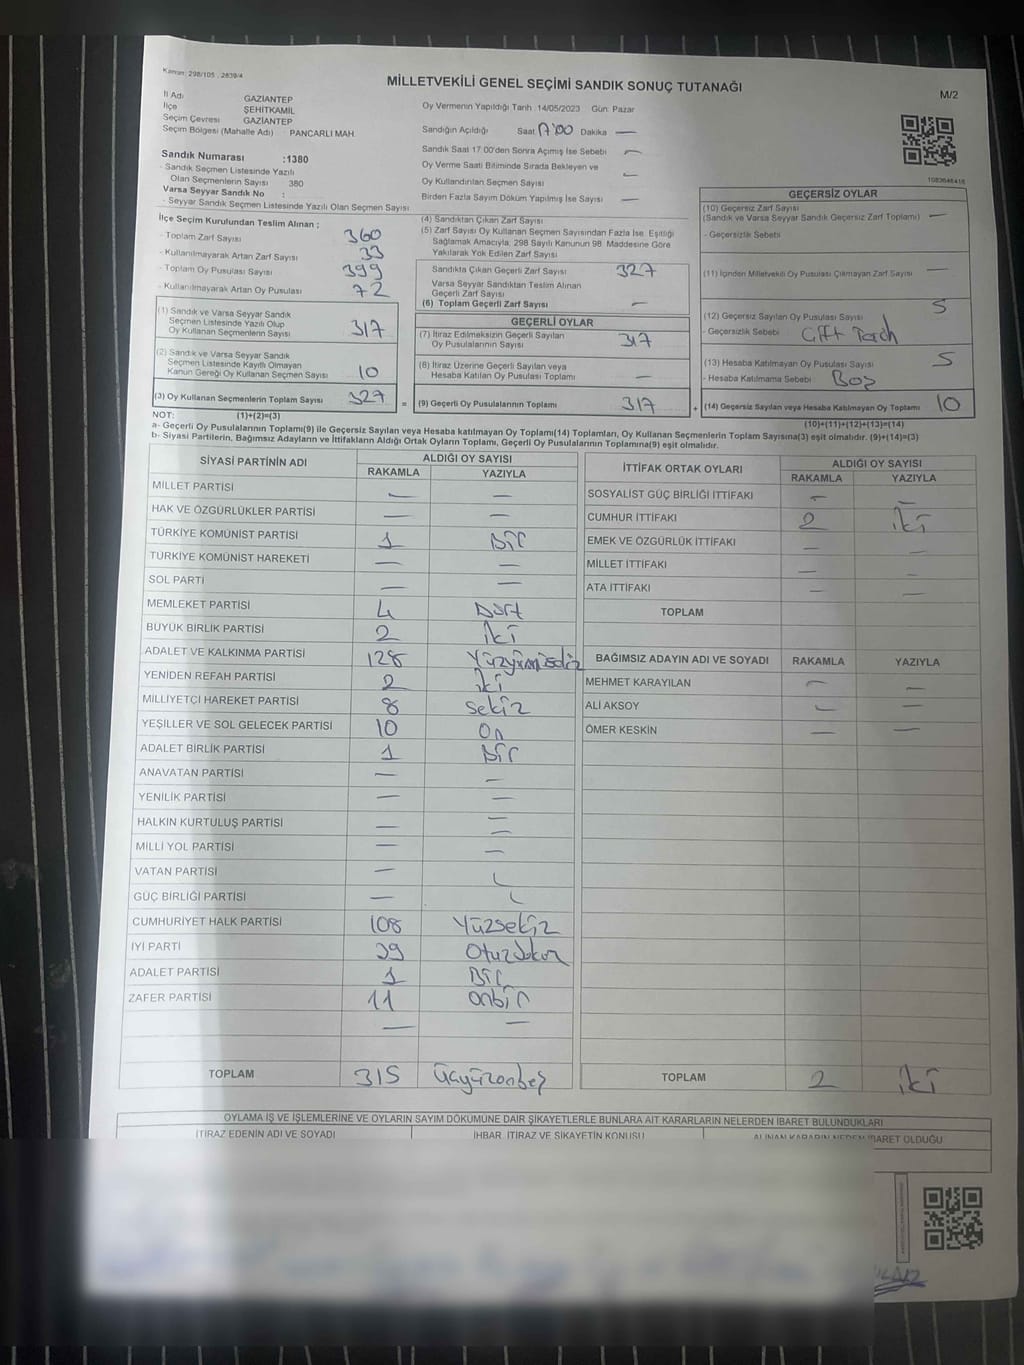 Kanun: 298/105 , 2839/4
MİLLETVEKİLİ GENEL SEÇİMİ SANDIK SONUÇ TUTANAĞI
M/2
İl Adı GAZİANTEP
İlçe ŞEHİTKAMİL
Seçim Çevresi GAZİANTEP
Seçim Bölgesi (Mahalle Adı) PANCARLI MAH.
Sandık Numarası :1380
- Sandık Seçmen Listesinde Yazılı
Olan Seçmenlerin Sayısı 380
Varsa Seyyar Sandık No :
- Seyyar Sandık Seçmen Listesinde Yazılı Olan Seçmen Sayısı
Oy Vermenin Yapıldığı Tarih :14/05/2023 Gün: Pazar
Sandığın Açıldığı Saat 17:00 Dakika —
Sandık Saat 17.00'den Sonra Açımış İse Sebebi —
Oy Verme Saati Bitiminde Sırada Bekleyen ve
Oy Kullandırılan Seçmen Sayısı —
Birden Fazla Sayım Döküm Yapılmış İse Sayısı —
1083646416
İlçe Seçim Kurulundan Teslim Alınan ;
- Toplam Zarf Sayısı 360
- Kullanılmayarak Artan Zarf Sayısı 33
- Toplam Oy Pusulası Sayısı 399
- Kullanılmayarak Artan Oy Pusulası 72
(1) Sandık ve Varsa Seyyar Sandık
Seçmen Listesinde Yazılı Olup
Oy Kullanan Seçmenlerin Sayısı 317
(2) Sandık ve Varsa Seyyar Sandık
Seçmen Listesinde Kayıtlı Olmayan
Kanun Gereği Oy Kullanan Seçmen Sayısı 10
(3) Oy Kullanan Seçmenlerin Toplam Sayısı 327
(4) Sandıktan Çıkan Zarf Sayısı
(5) Zarf Sayısı Oy Kullanan Seçmen Sayısından Fazla İse, Eşitliği
Sağlamak Amacıyla, 298 Sayılı Kanunun 98. Maddesine Göre
Yakılarak Yok Edilen Zarf Sayısı
Sandıkta Çıkan Geçerli Zarf Sayısı 327
Varsa Seyyar Sandıktan Teslim Alınan
Geçerli Zarf Sayısı
(6) Toplam Geçerli Zarf Sayısı —
GEÇERLİ OYLAR
(7) İtiraz Edilmeksizin Geçerli Sayılan
Oy Pusulalarının Sayısı 317
(8) İtiraz Üzerine Geçerli Sayılan veya
Hesaba Katılan Oy Pusulası Toplamı —
= (9) Geçerli Oy Pusulalarının Toplamı 317
GEÇERSİZ OYLAR
(10) Geçersiz Zarf Sayısı
(Sandık ve Varsa Seyyar Sandık Geçersiz Zarf Toplamı) —
- Geçersizlik Sebebi
(11) İçinden Milletvekili Oy Pusulası Çıkmayan Zarf Sayısı —
(12) Geçersiz Sayılan Oy Pusulası Sayısı 5
- Geçersizlik Sebebi Çift Tercih
(13) Hesaba Katılmayan Oy Pusulası Sayısı 5
- Hesaba Katılmama Sebebi Boş
+ (14) Geçersiz Sayılan veya Hesaba Katılmayan Oy Toplamı 10
NOT: (1)+(2)=(3)
(10)+(11)+(12)+(13)=(14)
a- Geçerli Oy Pusulalarının Toplamı(9) ile Geçersiz Sayılan veya Hesaba katılmayan Oy Toplamı(14) Toplamları, Oy Kullanan Seçmenlerin Toplam Sayısına(3) eşit olmalıdır. (9)+(14)=(3)
b- Siyasi Partilerin, Bağımsız Adayların ve İttifakların Aldığı Ortak Oyların Toplamı, Geçerli Oy Pusulalarının Toplamına(9) eşit olmalıdır.
SİYASİ PARTİNİN ADI ALDIĞI OY SAYISI
RAKAMLA YAZIYLA
MİLLET PARTİSİ — —
HAK VE ÖZGÜRLÜKLER PARTİSİ — —
TÜRKİYE KOMÜNİST PARTİSİ 1 Bir
TÜRKİYE KOMÜNİST HAREKETİ — —
SOL PARTİ — —
MEMLEKET PARTİSİ 4 Dört
BÜYÜK BİRLİK PARTİSİ 2 İki
ADALET VE KALKINMA PARTİSİ 128 Yüzyirmisekiz
YENİDEN REFAH PARTİSİ 2 İki
MİLLİYETÇİ HAREKET PARTİSİ 8 Sekiz
YEŞİLLER VE SOL GELECEK PARTİSİ 10 On
ADALET BİRLİK PARTİSİ 1 Bir
ANAVATAN PARTİSİ — —
YENİLİK PARTİSİ — —
HALKIN KURTULUŞ PARTİSİ — —
MİLLİ YOL PARTİSİ — —
VATAN PARTİSİ — —
GÜÇ BİRLİĞİ PARTİSİ — —
CUMHURİYET HALK PARTİSİ 108 Yüzsekiz
İYİ PARTİ 39 Otuzdokuz
ADALET PARTİSİ 1 Bir
ZAFER PARTİSİ 11 Onbir
— —
TOPLAM 315 Üçyüzonbeş
İTTİFAK ORTAK OYLARI ALDIĞI OY SAYISI
RAKAMLA YAZIYLA
SOSYALİST GÜÇ BİRLİĞİ İTTİFAKI — —
CUMHUR İTTİFAKI 2 İki
EMEK VE ÖZGÜRLÜK İTTİFAKI — —
MİLLET İTTİFAKI — —
ATA İTTİFAKI — —
TOPLAM
BAĞIMSIZ ADAYIN ADI VE SOYADI RAKAMLA YAZIYLA
MEHMET KARAYILAN — —
ALİ AKSOY — —
ÖMER KESKİN — —
TOPLAM 2 İki
OYLAMA İŞ VE İŞLEMLERİNE VE OYLARIN SAYIM DÖKÜMÜNE DAİR ŞİKAYETLERLE BUNLARA AİT KARARLARIN NELERDEN İBARET BULUNDUKLARI
İTİRAZ EDENİN ADI VE SOYADI İHBAR, İTİRAZ VE ŞİKAYETİN KONUSU ALINAN KARARIN NEDEN İBARET OLDUĞU